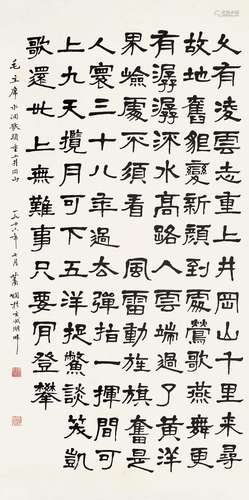 久有凌雲志重上井岡山千里来尋
故地舊貌變新顔到處鶯歌燕舞更
有潺潺流水高路入雲端過了黄洋
界嶮處不須看　風雷動旌旗奮是
人寰三十八年過去彈指一揮間可
上九天攬月可下五洋捉鱉談笑凱
歌還世上無難事只要肯登攀
毛主席水調歌頭重上井岡山
一九七六年七月蕭嫻於玄武湖畔